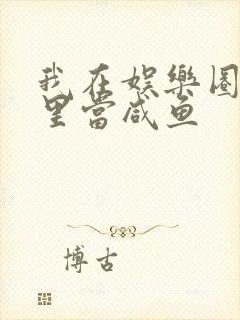 我在娱樂圈
里當咸鱼
博古